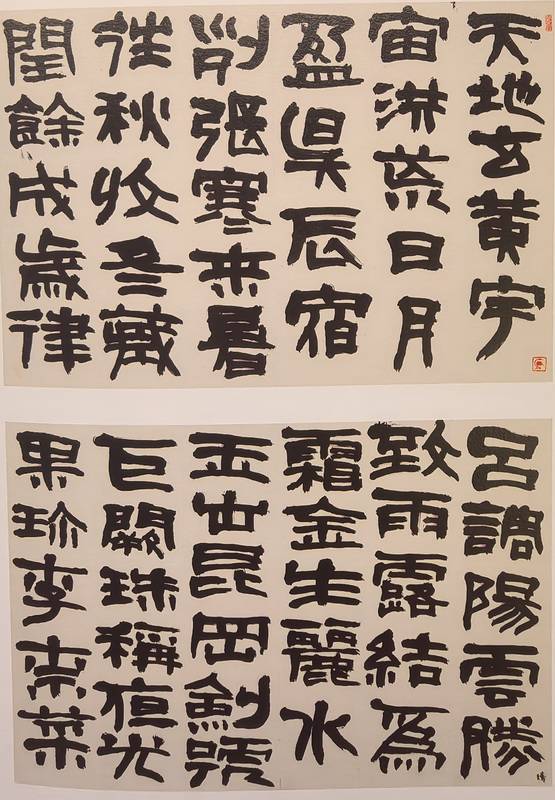 天地玄黃宇
宙洪荒日月
盈昃辰宿
列張寒來暑
往秋收冬藏
閏餘成歲律
呂調陽雲騰
致雨露結爲
霜金生麗水
玉出昆岡劍號
巨闕珠稱夜光
果珍李柰菜